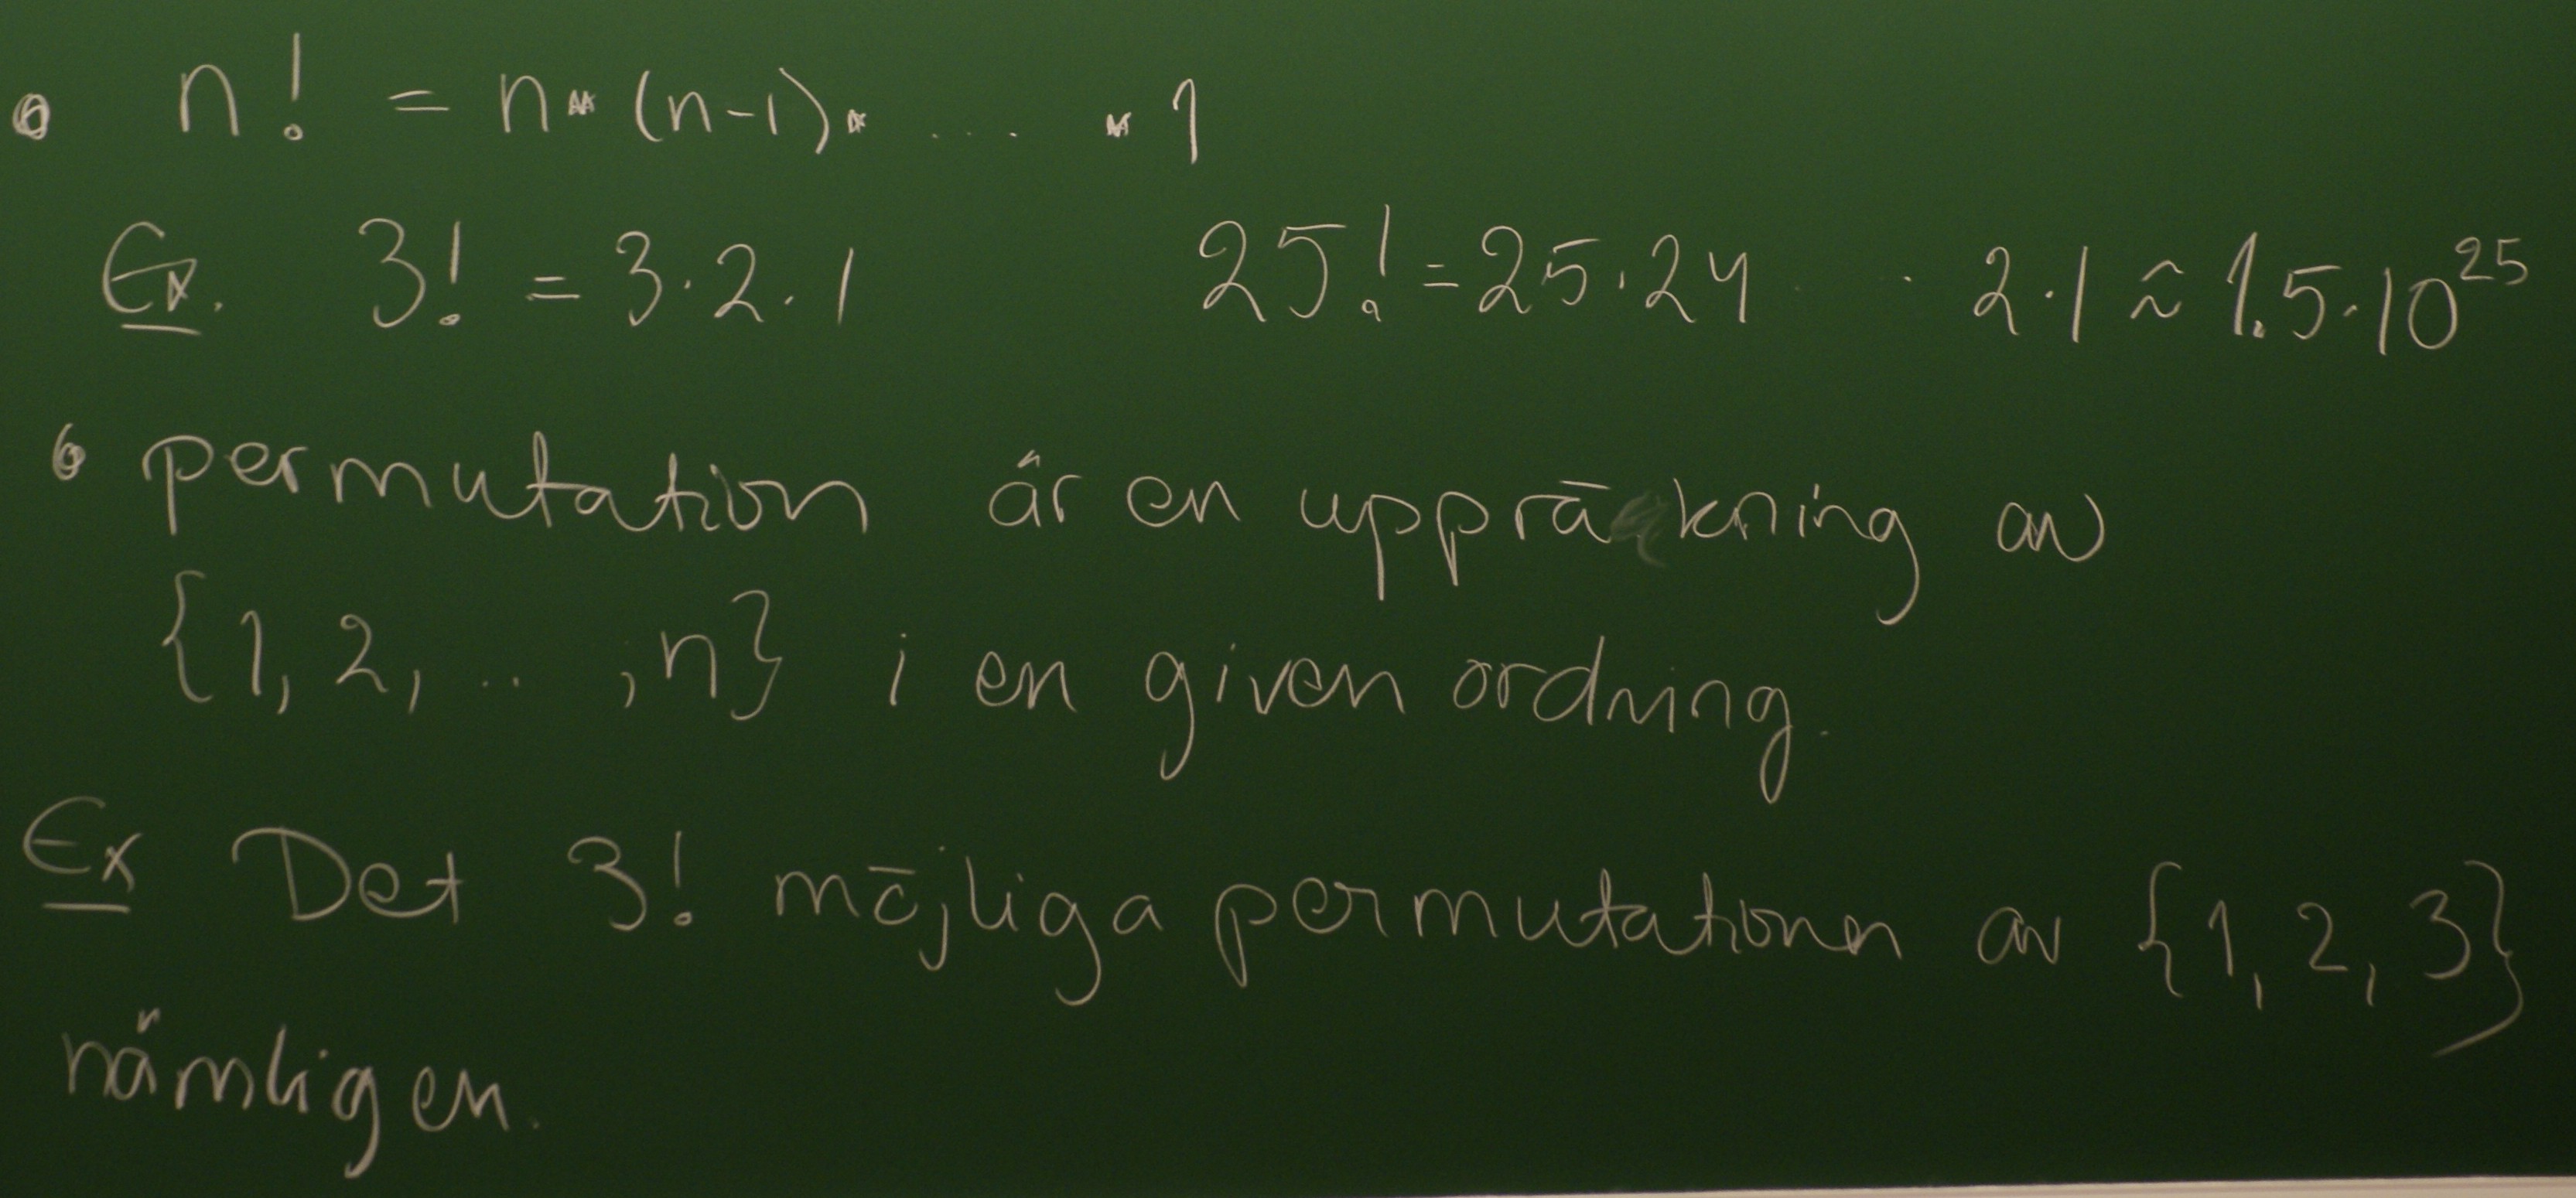 • n! = n · (n-1) · ... · 1
Ex. 3! = 3·2·1 25! = 25·24 · 2·1 ≈ 1.5·10²⁵
• permutation är en uppräkning av
{1, 2, .. , n} i en given ordning.
Ex Det 3! möjliga permutationer av {1, 2, 3}
nämligen.